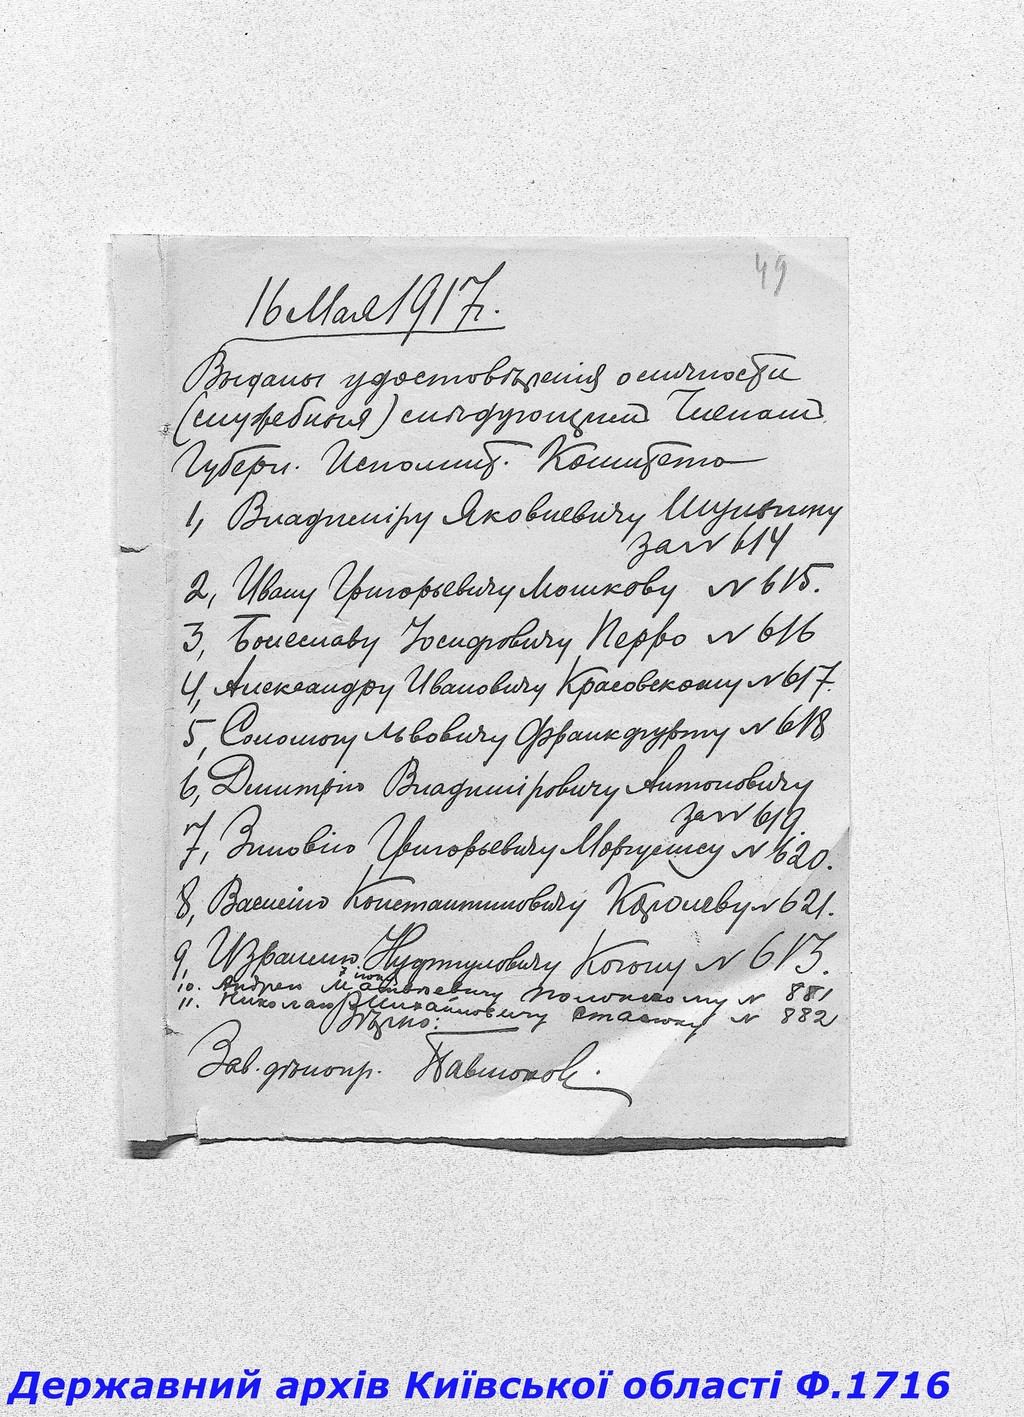 49
16 Мая 1917 г.
Выданы удостовѣренія о личности
(служебныя) слѣдующим Членам
Губерн. Исполнит. Комитета
1, Владиміру Яковлевичу Шульгину
за № 614
2, Ивану Григорьевичу Мошкову № 615.
3, Болеславу Іосифовичу Перро № 616
4, Александру Ивановичу Красовскому № 617.
5, Соломону Львовичу Франкфурту № 618
6, Димитрію Владиміровичу Антоновичу
за № 619.
7, Зиновію Григорьевичу Моргулису № 620.
8, Василію Константиновичу Королеву № 621.
9, Израилю Нуфтуловичу Когону № 613.
3 іюня
10. Андрею Матвѣевичу Полонскому № 881
11. Николаю Михайловичу Стасюку № 882
Вѣрно:
Зав. дѣлопр. Павлюков.
Державний архів Київської області Ф.1716